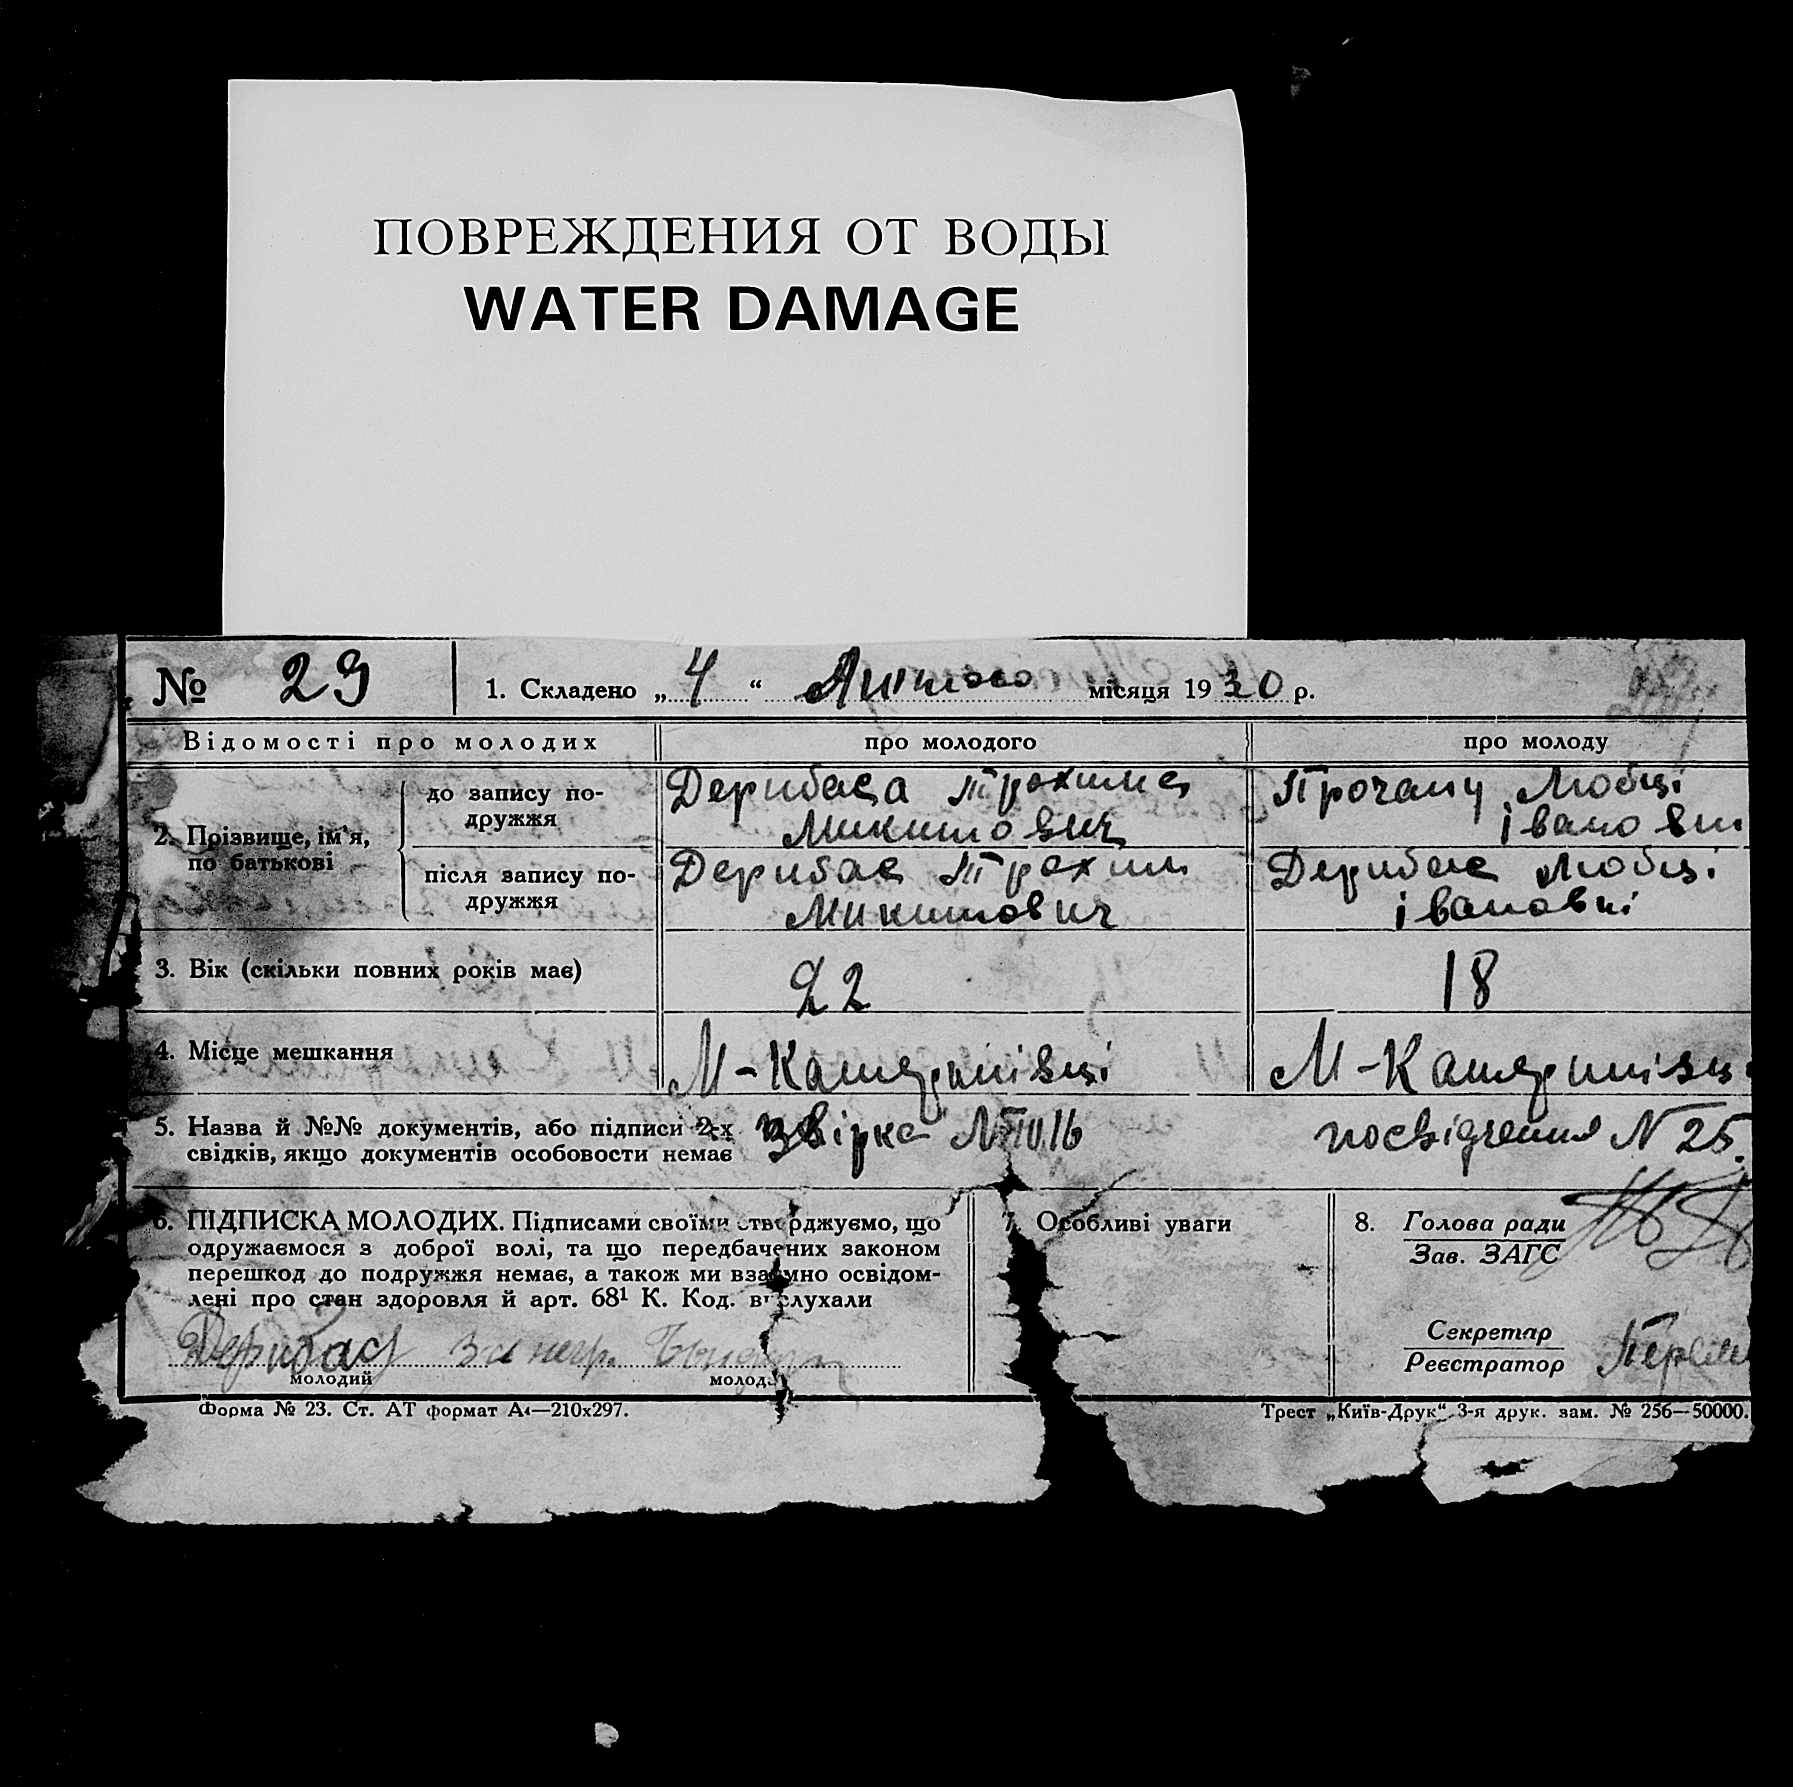 ПОВРЕЖДЕНИЯ ОТ ВОДЫ
WATER DAMAGE
№ 29 1. Складено „ 4 “ Лютого місяця 1930 р.
Відомості про молодих про молодого про молоду
2. Прізвище, ім'я, по батькові
до запису подружжя
Дерибаса Трохима
Микитович
Любці
Івановни
після запису по-
дружжя
Дерибас Трохим
Микитович
Дерибас Любці
Івановні
3. Вік (скільки повних років має) 22 18
4. Місце мешкання М-Катеринівці М-Катеринівці
5. Назва й №№ документів, або підписи 2-х
свідків, якщо документів особовости немає
звірка № посвідчення № 25.
6. ПІДПИСКА МОЛОДИХ. Підписами своїми стверджуємо, що
одружаємося з доброї волі, та що передбачених законом
перешкод до подружжя немає, а також ми взаємно освідом-
лені про стан здоровля й арт. 68¹ К. Код. вислухали
Дерибас за негр.
молодий молода
7. Особливі уваги
8. Голова ради
Зав. ЗАГС
Секретар
Реєстратор
Форма № 23. Ст. АТ формат А4—210х297.
Трест „Київ-Друк“ 3-я друк. зам. № 256—50000.